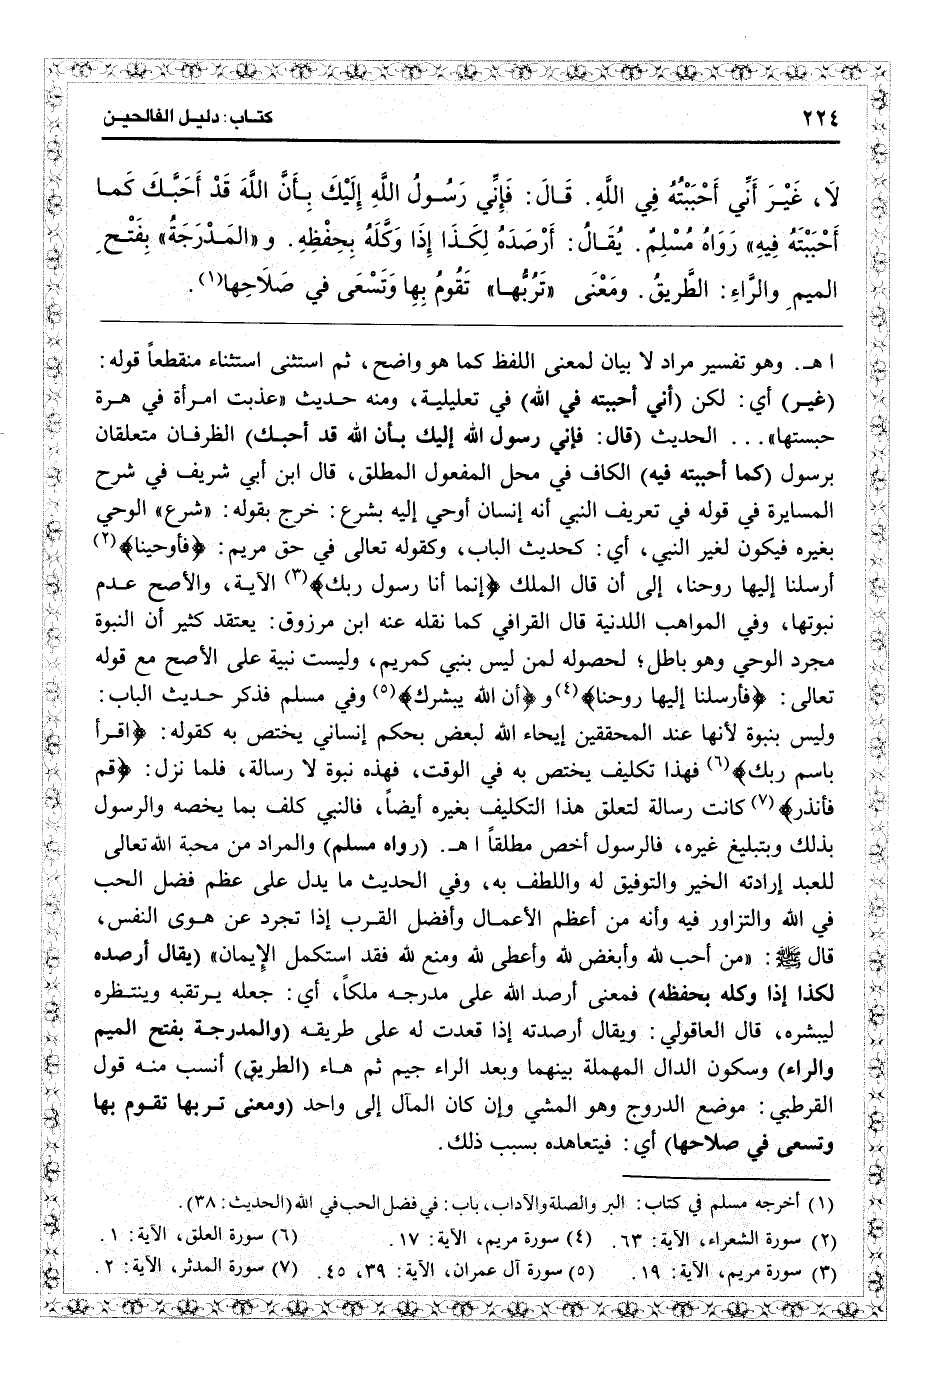 ٢٢٤ كتاب: دليل الفالحين
لَا، غَيْرَ أَنِّي أَحْبَبْتُهُ فِي اللَّهِ. قَالَ: فَإِنِّي رَسُولُ اللَّهِ إِلَيْكَ بِأَنَّ اللَّهَ قَدْ أَحَبَّكَ كَمَا
أَحْبَبْتَهُ فِيهِ» رَوَاهُ مُسْلِمٌ. يُقَالُ: أَرْصَدَهُ لِكَذَا إِذَا وَكَّلَهُ بِحِفْظِهِ. و «المَدْرَجَةُ» بِفَتْحِ
الميمِ والرَّاءِ: الطَّرِيقُ. ومَعْنَى «تَرُبُّهـا» تَقُومُ بِها وَتَسْعَى في صَلَاحِها(١).
ا هـ. وهو تفسير مراد لا بيان لمعنى اللفظ كما هو واضح، ثم استثنى استثناء منقطعاً قوله:
(غير) أي: لكن (أني أحببته في الله) في تعليلية، ومنه حديث «عذبت امرأة في هرة
حبستها»... الحديث (قال: فإني رسول الله إليك بأن الله قد أحبك) الظرفان متعلقان
برسول (كما أحببته فيه) الكاف في محل المفعول المطلق، قال ابن أبي شريف في شرح
المسايرة في قوله في تعريف النبي أنه إنسان أوحي إليه بشرع: خرج بقوله: «شرع» الوحي
بغيره فيكون لغير النبي، أي: كحديث الباب، وكقوله تعالى في حق مريم: ﴿فأوحينا﴾(٢)
أرسلنا إليها روحنا، إلى أن قال الملك ﴿إنما أنا رسول ربك﴾(٣) الآية، والأصح عدم
نبوتها، وفي المواهب اللدنية قال القرافي كما نقله عنه ابن مرزوق: يعتقد كثير أن النبوة
مجرد الوحي وهو باطل؛ لحصوله لمن ليس بنبي كمريم، وليست نبية على الأصح مع قوله
تعالى: ﴿فأرسلنا إليها روحنا﴾(٤) و ﴿أن الله يبشرك﴾(٥) وفي مسلم فذكر حديث الباب:
وليس بنبوة لأنها عند المحققين إيحاء الله لبعض بحكم إنساني يختص به كقوله: ﴿اقرأ
باسم ربك﴾(٦) فهذا تكليف يختص به في الوقت، فهذه نبوة لا رسالة، فلما نزل: ﴿قم
فأنذر﴾(٧) كانت رسالة لتعلق هذا التكليف بغيره أيضاً، فالنبي كلف بما يخصه والرسول
بذلك وبتبليغ غيره، فالرسول أخص مطلقاً ا هـ. (رواه مسلم) والمراد من محبة الله تعالى
للعبد إرادته الخير والتوفيق له واللطف به، وفي الحديث ما يدل على عظم فضل الحب
في الله والتزاور فيه وأنه من أعظم الأعمال وأفضل القرب إذا تجرد عن هوى النفس،
قال ﷺ: «من أحب لله وأبغض لله وأعطى لله ومنع لله فقد استكمل الإيمان» (يقال أرصده
لكذا إذا وكله بحفظه) فمعنى أرصد الله على مدرجه ملكاً، أي: جعله يرتقبه وينتظره
ليبشره، قال العاقولي: ويقال أرصدته إذا قعدت له على طريقه (والمدرجة بفتح الميم
والراء) وسكون الدال المهملة بينهما وبعد الراء جيم ثم هاء (الطريق) أنسب منه قول
القرطبي: موضع الدروج وهو المشي وإن كان المآل إلى واحد (ومعنى تربها تقوم بها
وتسعى في صلاحها) أي: فيتعاهده بسبب ذلك.
(١) أخرجه مسلم في كتاب: البر والصلة والآداب، باب: في فضل الحب في الله (الحديث: ٣٨).
(٢) سورة الشعراء، الآية: ٦٣. (٤) سورة مريم، الآية: ١٧. (٦) سورة العلق، الآية: ١.
(٣) سورة مريم، الآية: ١٩. (٥) سورة آل عمران، الآية: ٣٩، ٤٥. (٧) سورة المدثر، الآية: ٢.